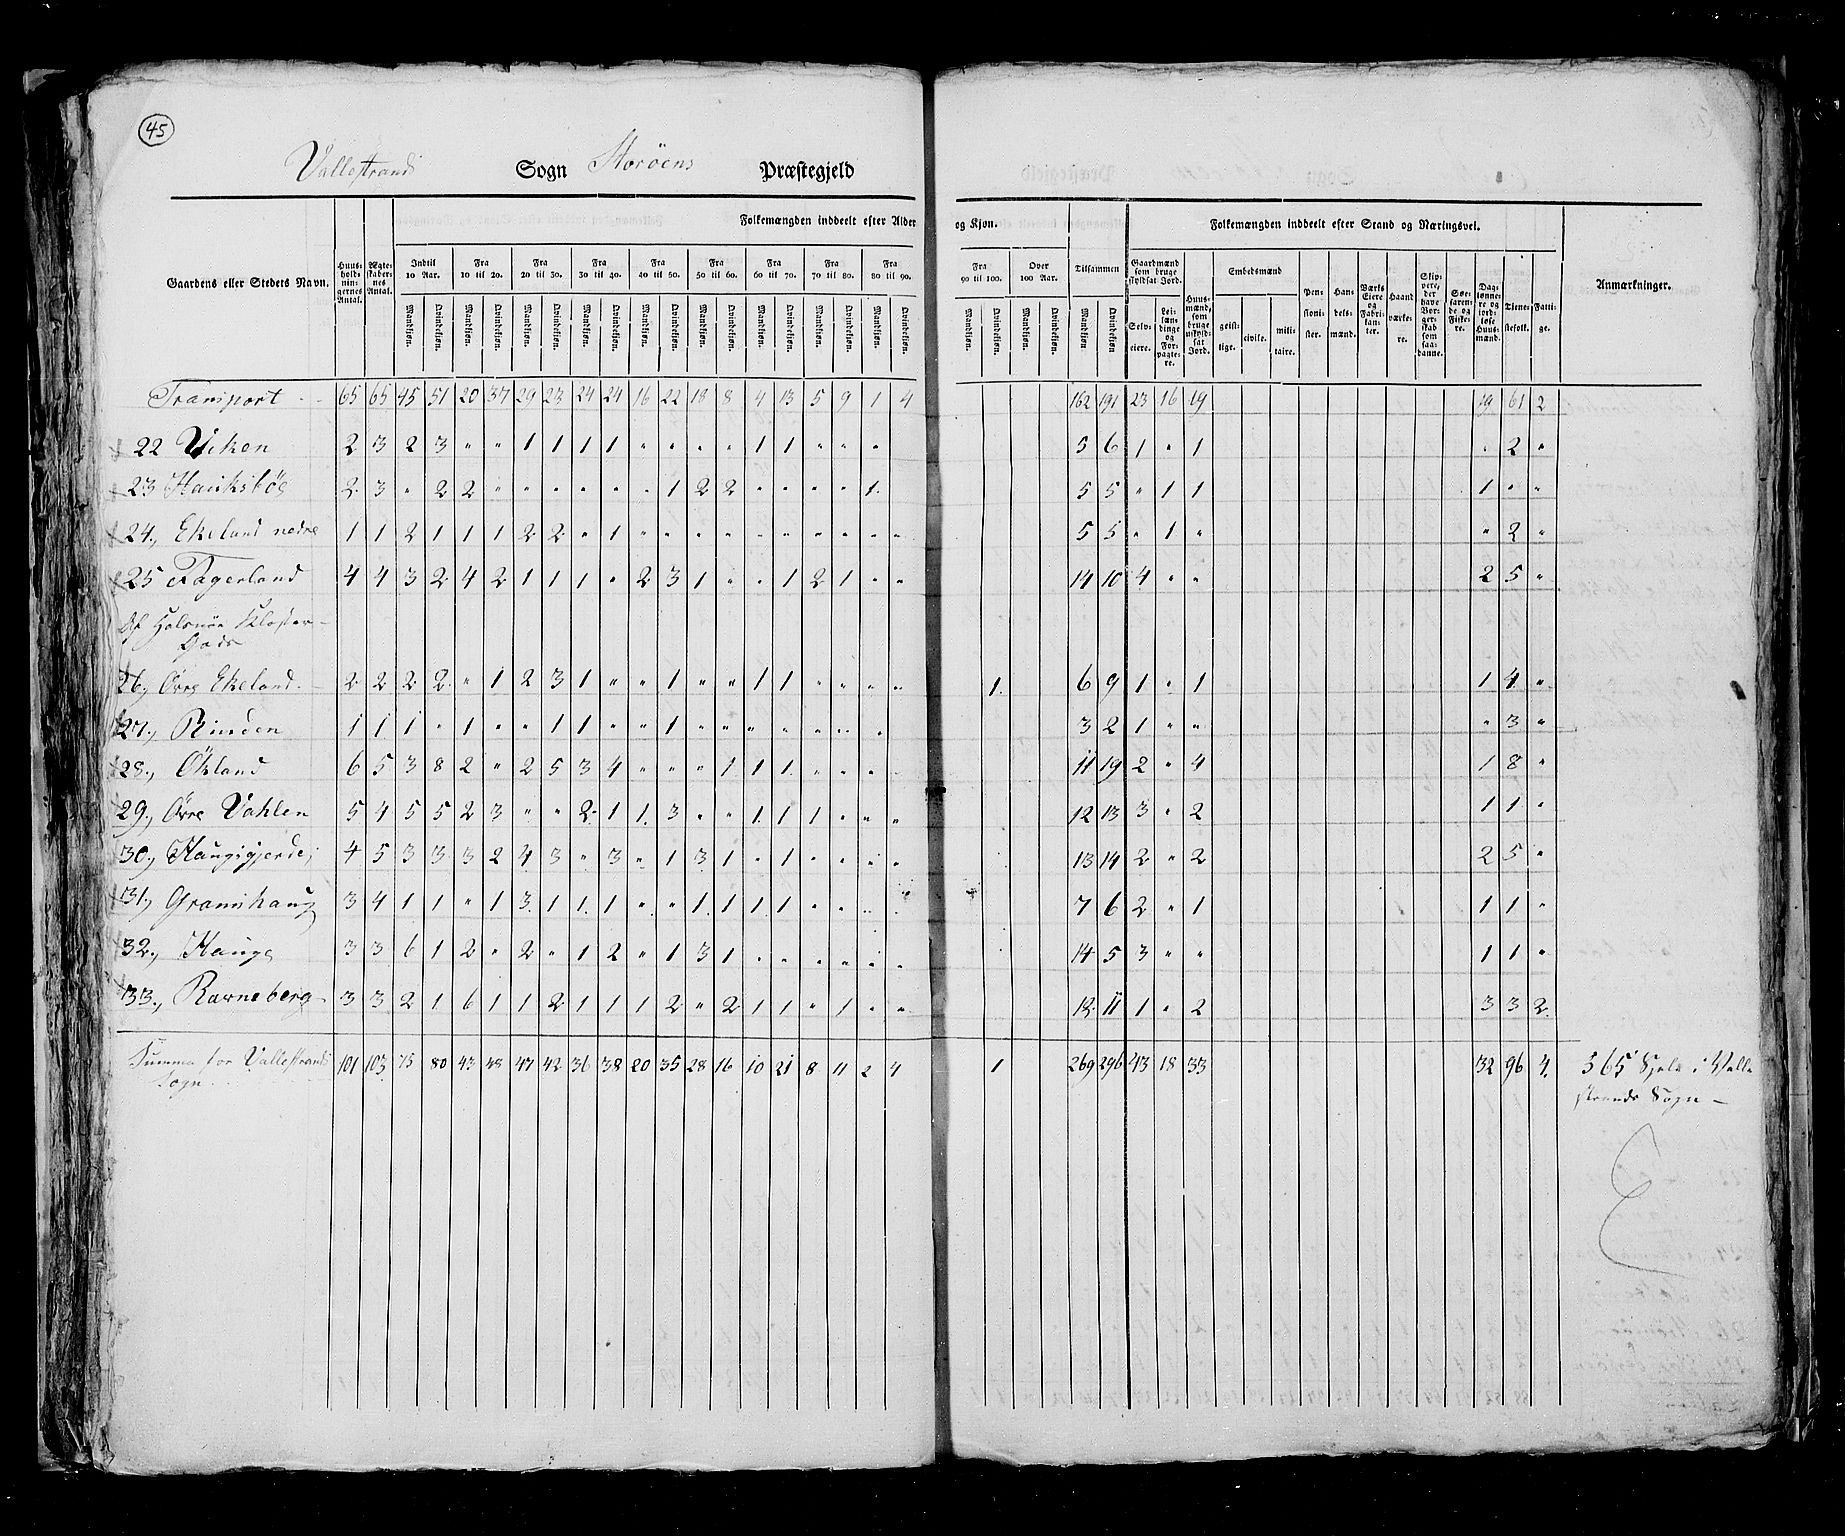 45
Vallestrands Sogn Storöens Præstegjeld
Folkemængden inddeelt efter Alder og Kjøn. Folkemængden inddeelt efter Stand og Næringsvei.
Gaardens eller Stedets Navn. Huusholdningernes Antal. Ægteskabernes Antal. Indtil 10 Aar. Fra 10 til 20. Fra 20 til 30. Fra 30 til 40. Fra 40 til 50. Fra 50 til 60. Fra 60 til 70. Fra 70 til 80. Fra 80 til 90. Fra 90 til 100. Over 100 Aar. Tilsammen Gaardmænd som bruge skyldsat Jord. Huusmænd, som bruge uskyldsat Jord. Embedsmænd Pensionister. Handelsmænd. Værks Eiere og Fabrikanter. Haandværkere. Skippere, der have Borgerskab som saadanne. Søefarende og Fiskere. Daglønnere og jordløse Huusmænd. Tienestefolk. Fattige. Anmærkninger.
Mandkjøn. Qvindekjøn. Mandkjøn. Qvindekjøn. Mandkjøn. Qvindekjøn. Mandkjøn. Qvindekjøn. Mandkjøn. Qvindekjøn. Mandkjøn. Qvindekjøn. Mandkjøn. Qvindekjøn. Mandkjøn. Qvindekjøn. Mandkjøn. Qvindekjøn. Mandkjøn. Qvindekjøn. Mandkjøn. Qvindekjøn. Mandkjøn. Qvindekjøn Selveiere. Leilændinge og Forpagtere. geistlige. civile. militaire.
Transport 65 65 45 51 20 37 29 23 24 24 16 22 18 8 4 13 5 9 1 4 162 191 23 16 19 19 61 2
22 Viken 2 3 2 3 " " 1 1 1 1 " " " " 1 1 " " " 5 6 1 " 1 " 2 "
23 Hauksböe 2 3 " 2 2 " " " " " " 1 2 2 " " " " 1. 5 5 " 1 1 1 " "
24., Ekeland nedre 1 1 2 1 1 1 2 2 " 1 " " " " " " " " " " 5 5 " 1 " " 2 "
25 Fagerland 4 4 3 2 4 2 1 1 1 " 2 3 1 " " 1 2 1 " " 14 10 4 " " 2 5 "
Af Halsnöe Kloster-
Gods
26., Övre Ekeland. 2 2 2 2 " 1 2 3 1 " " 1 " " 1 1 " " " " 1. 6 9 1 " 1 1 4 "
27., Rinden 1 1 1 " 1 " " 1 1 " " 1 " " " " " " " 3 2 1 " " " 3 "
28., Ökland 6 5 3 8 2 " 2 5 3 4 " " " 1 1 1 " " " " 11 19 2 " 4 1 8 "
29., Övre Vahlen 5 4 5 5 2 3 " " 2 1 1 3 " " 1 1 1 " " " 12 13 3 " 2 1 1 "
30., Haugigjerde; 4 5 3 3 3 2 4 3 " 3 " 1 3 1 " 1 " " " " 13 14 2 " 2 2 5 "
31., Gramshaug 3 4 1 1 " 1 3 1 1 1 " " 1 1 1 1 " " " " 7 6 2 " 1 1 1 "
32., Hauge 3 3 6 1 2 " 2 " 1 2 " 1 3 1 " " " " " " 14 5 3 " " 1 1 "
33., Ravneberg 3 3 2 1 6 1 1 2 1 1 1 2 " 2 1 1 " 1 " " 12 11 1 " 2 3 3 2
Summa for Vallestrands 101 103 75 80 43 48 47 42 36 38 20 35 28 16 10 21 8 11 2 4 1 269 296 43 18 33 32 96 4. 565 Sjele i Valle
Sogn strands Sogn